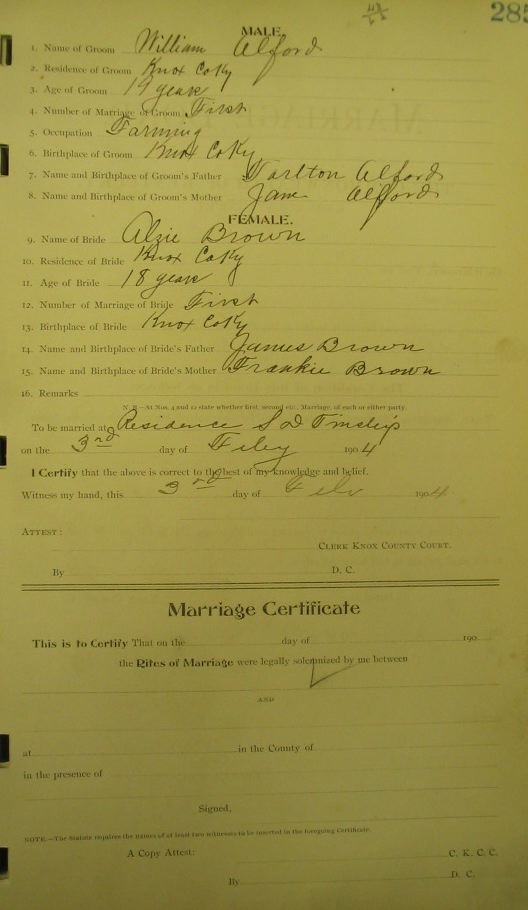 285
MALE.
1. Name of Groom William Alford
2. Residence of Groom Knox Co Ky
3. Age of Groom 19 years
4. Number of Marriage of Groom First
5. Occupation Farming
6. Birthplace of Groom Knox Co Ky
7. Name and Birthplace of Groom's Father Tarlton Alford
8. Name and Birthplace of Groom's Mother Jane Alford
FEMALE.
9. Name of Bride Alzie Brown
10. Residence of Bride Knox Co Ky
11. Age of Bride 18 years
12. Number of Marriage of Bride First
13. Birthplace of Bride Knox Co Ky
14. Name and Birthplace of Bride's Father James Brown
15. Name and Birthplace of Bride's Mother Frankie Brown
16. Remarks
N. B.—At Nos. 4 and 12 state whether first, second etc., Marriage, of each or either party.
To be married at Residence S D Tinsley's
on the 3rd day of Feby 1904
I Certify that the above is correct to the best of my knowledge and belief.
Witness my hand, this 3rd day of Feb 1904
ATTEST:
CLERK KNOX COUNTY COURT.
By D. C.
Marriage Certificate
This is to Certify That on the day of 190
the Rites of Marriage were legally solemnized by me between
AND
at in the County of
in the presence of
Signed,
NOTE.—The Statute requires the names of at least two witnesses to be inserted in the foregoing Certificate.
A Copy Attest: C. K. C. C.
By D. C.